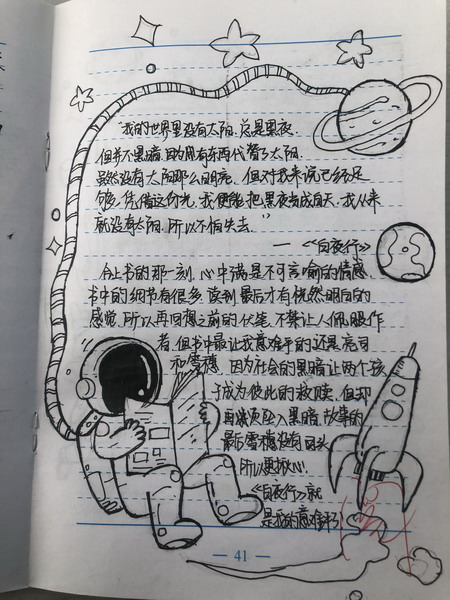 我的世界里没有太阳,总是黑夜.
但并不黑暗,因为有东西代替了太阳.
虽然没有太阳那么明亮,但对我来说已经足
够.凭借这份光,我便能把黑夜当成白天.我从来
就没有太阳,所以不怕失去."
—《白夜行》
合上书的那一刻,心中满是不可言喻的情感,
书中的细节有很多,读到最后才有恍然明白的
感觉,所以再回想之前的伏笔,不禁让人佩服作
者,但书中最让我意难平的还是亮司
和雪穗,因为社会的黑暗让两个孩
子成为彼此的救赎,但却
再次坠入黑暗,故事的
最后雪穗没有回头
所以更揪心.
《白夜行》就
是我的意难平
— 41 —